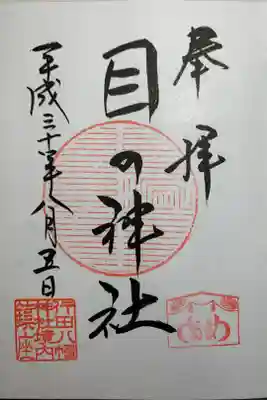 奉拝
目の神社
平成三十年八月五日
め め